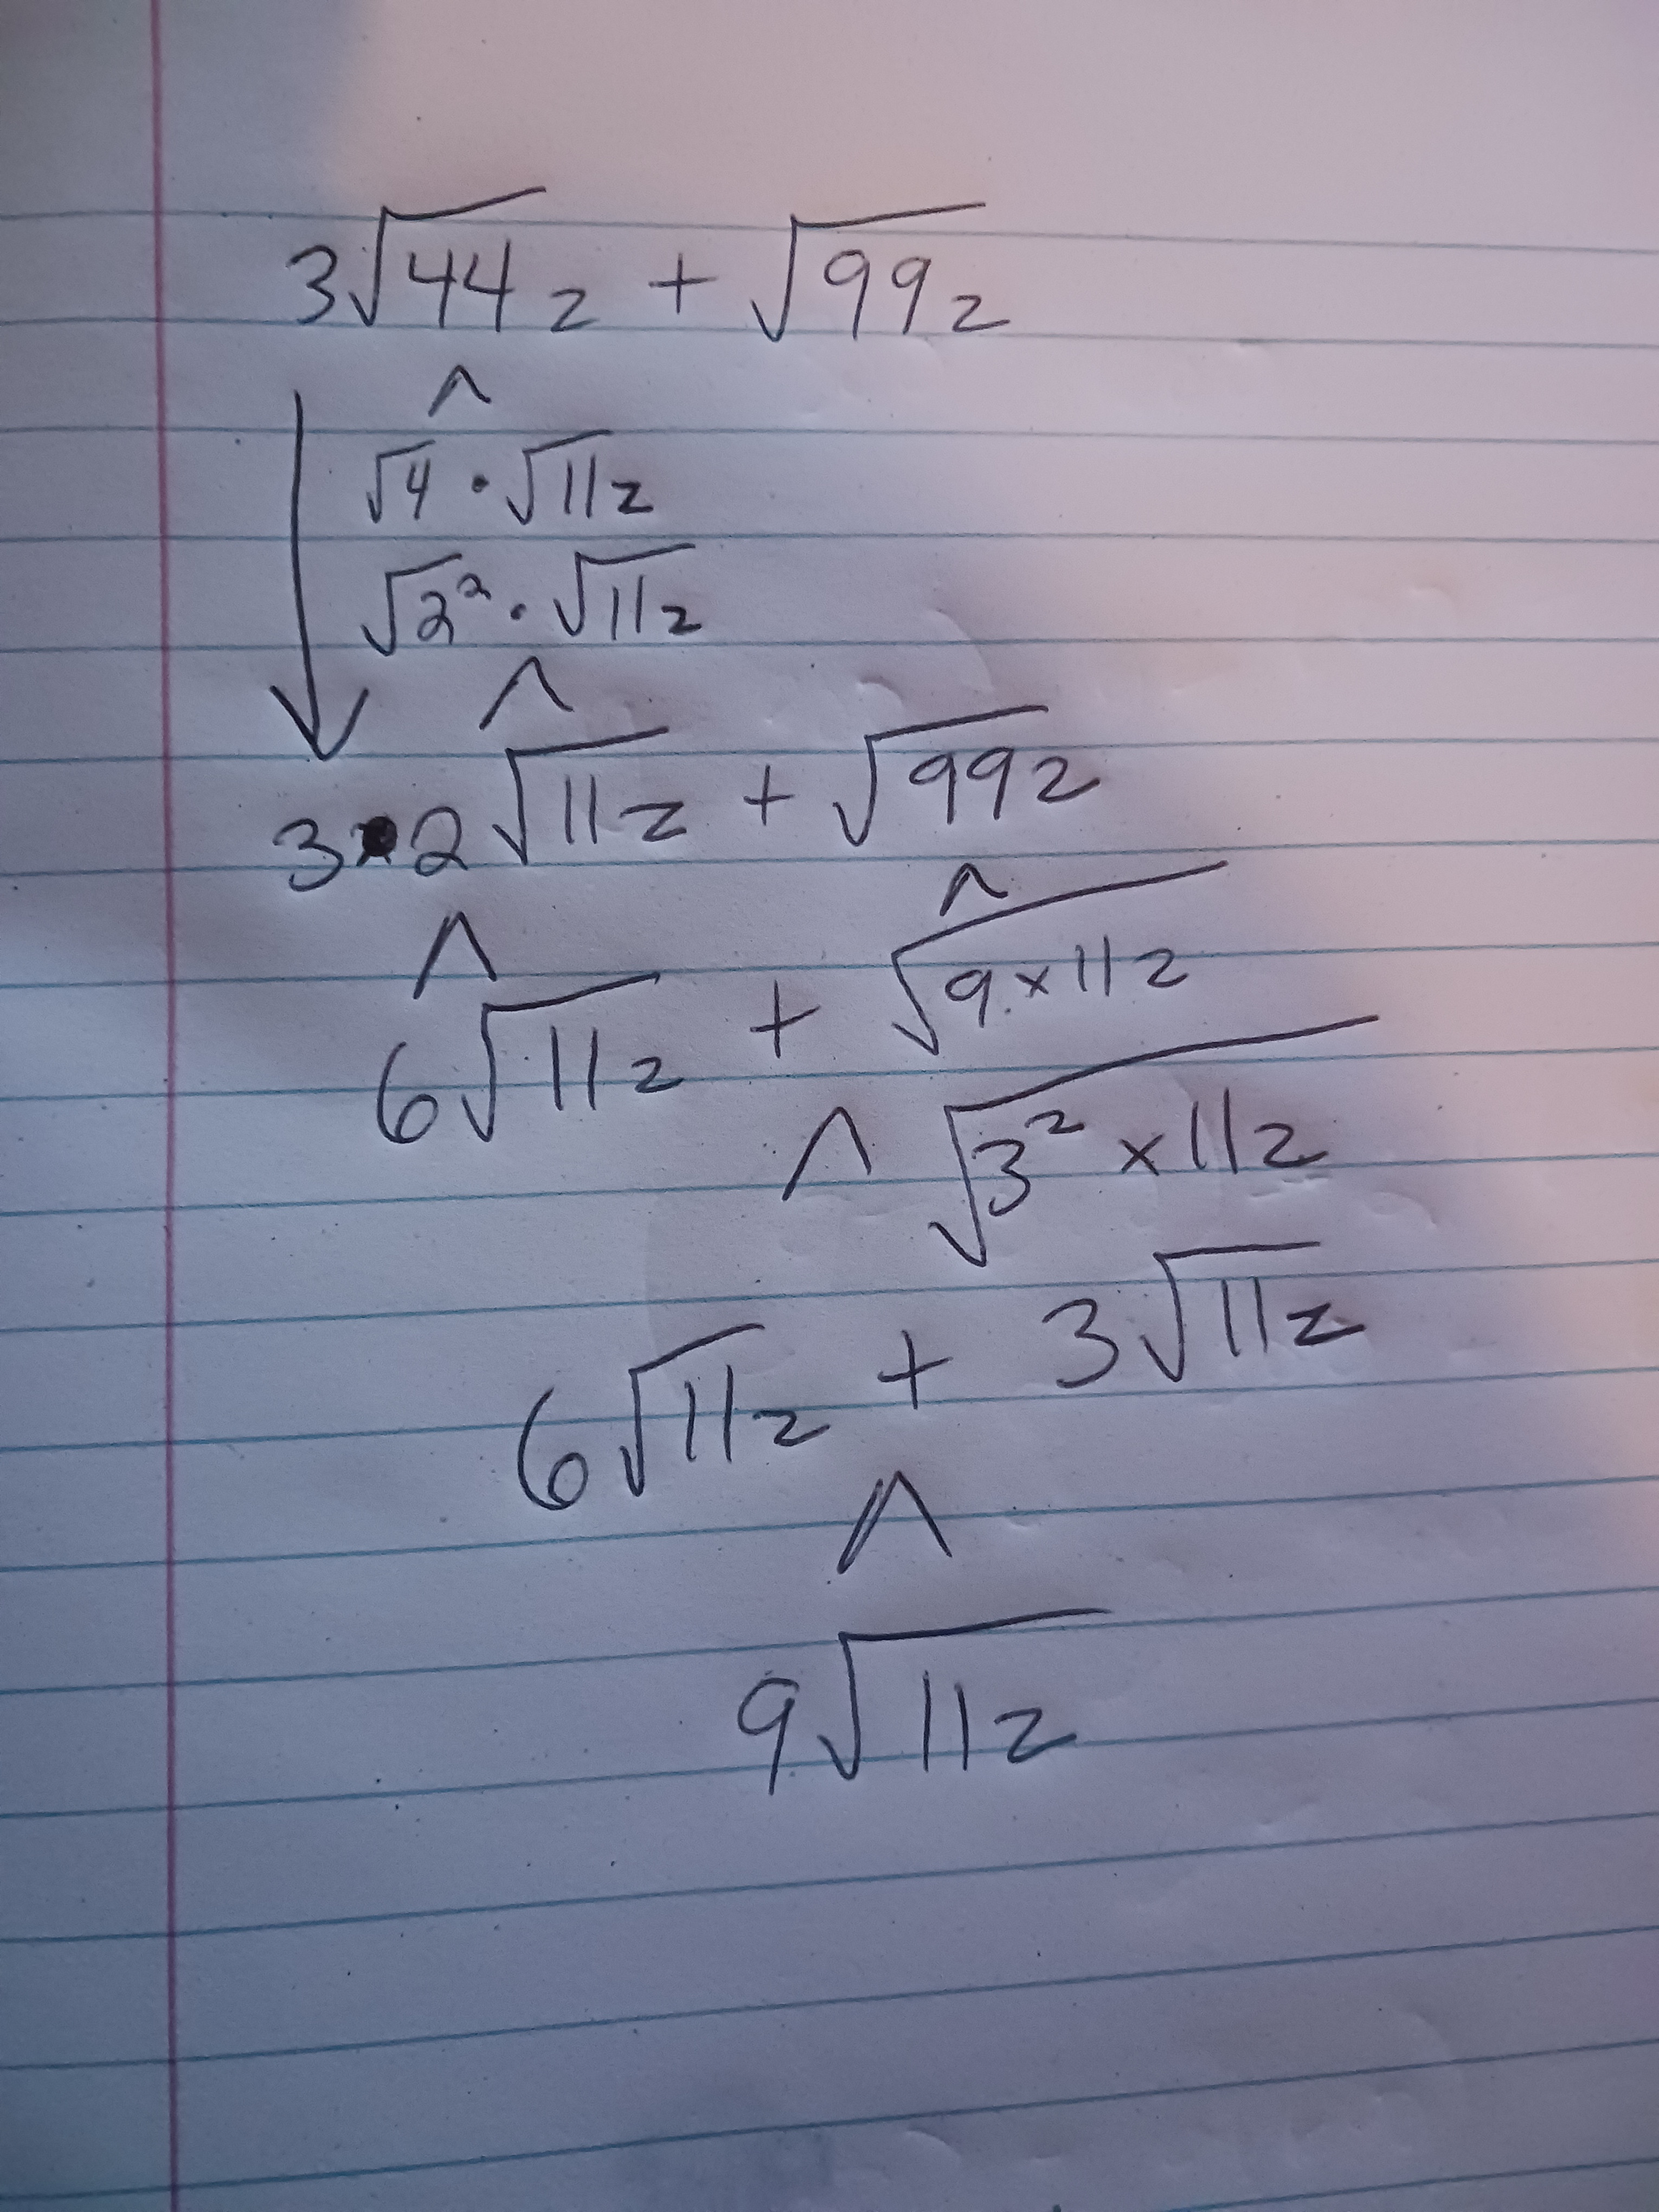 3√44z + √99z
^
√4 · √11z
√2² · √11z
^
3·2√11z + √99z
^ ^
6√11z + √9×11z
^ √3²×11z
6√11z + 3√11z
^
9√11z